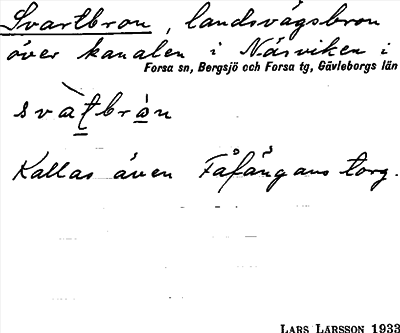 Svartbron, landsvägsbron
över kanalen i Näsviken i
Forsa sn, Bergsjö och Forsa tg, Gävleborgs län
svàt̠brån
Kallas även Fåfängans torg.
LARS LARSSON 1933